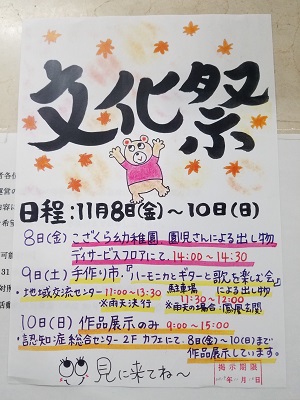 文化祭
日程:11月8日(金)~10日(日)
8日(金) こざくら幼稚園 園児さんによる出し物
デイサービスフロアにて、14:00~14:30
9日(土) 手作り市・『ハーモニカとギターと歌を楽しむ会』
・地域交流センター 11:00~13:30
※雨天決行
駐車場 による出し物
11:30~12:00
※雨天の場合:園風玄関
10日(日) 作品展示のみ 9:00~15:00
・認知症総合センター2Fカフェにて、8日(金)~10日(日)まで
作品展示しています。
見に来てね~
掲示期限